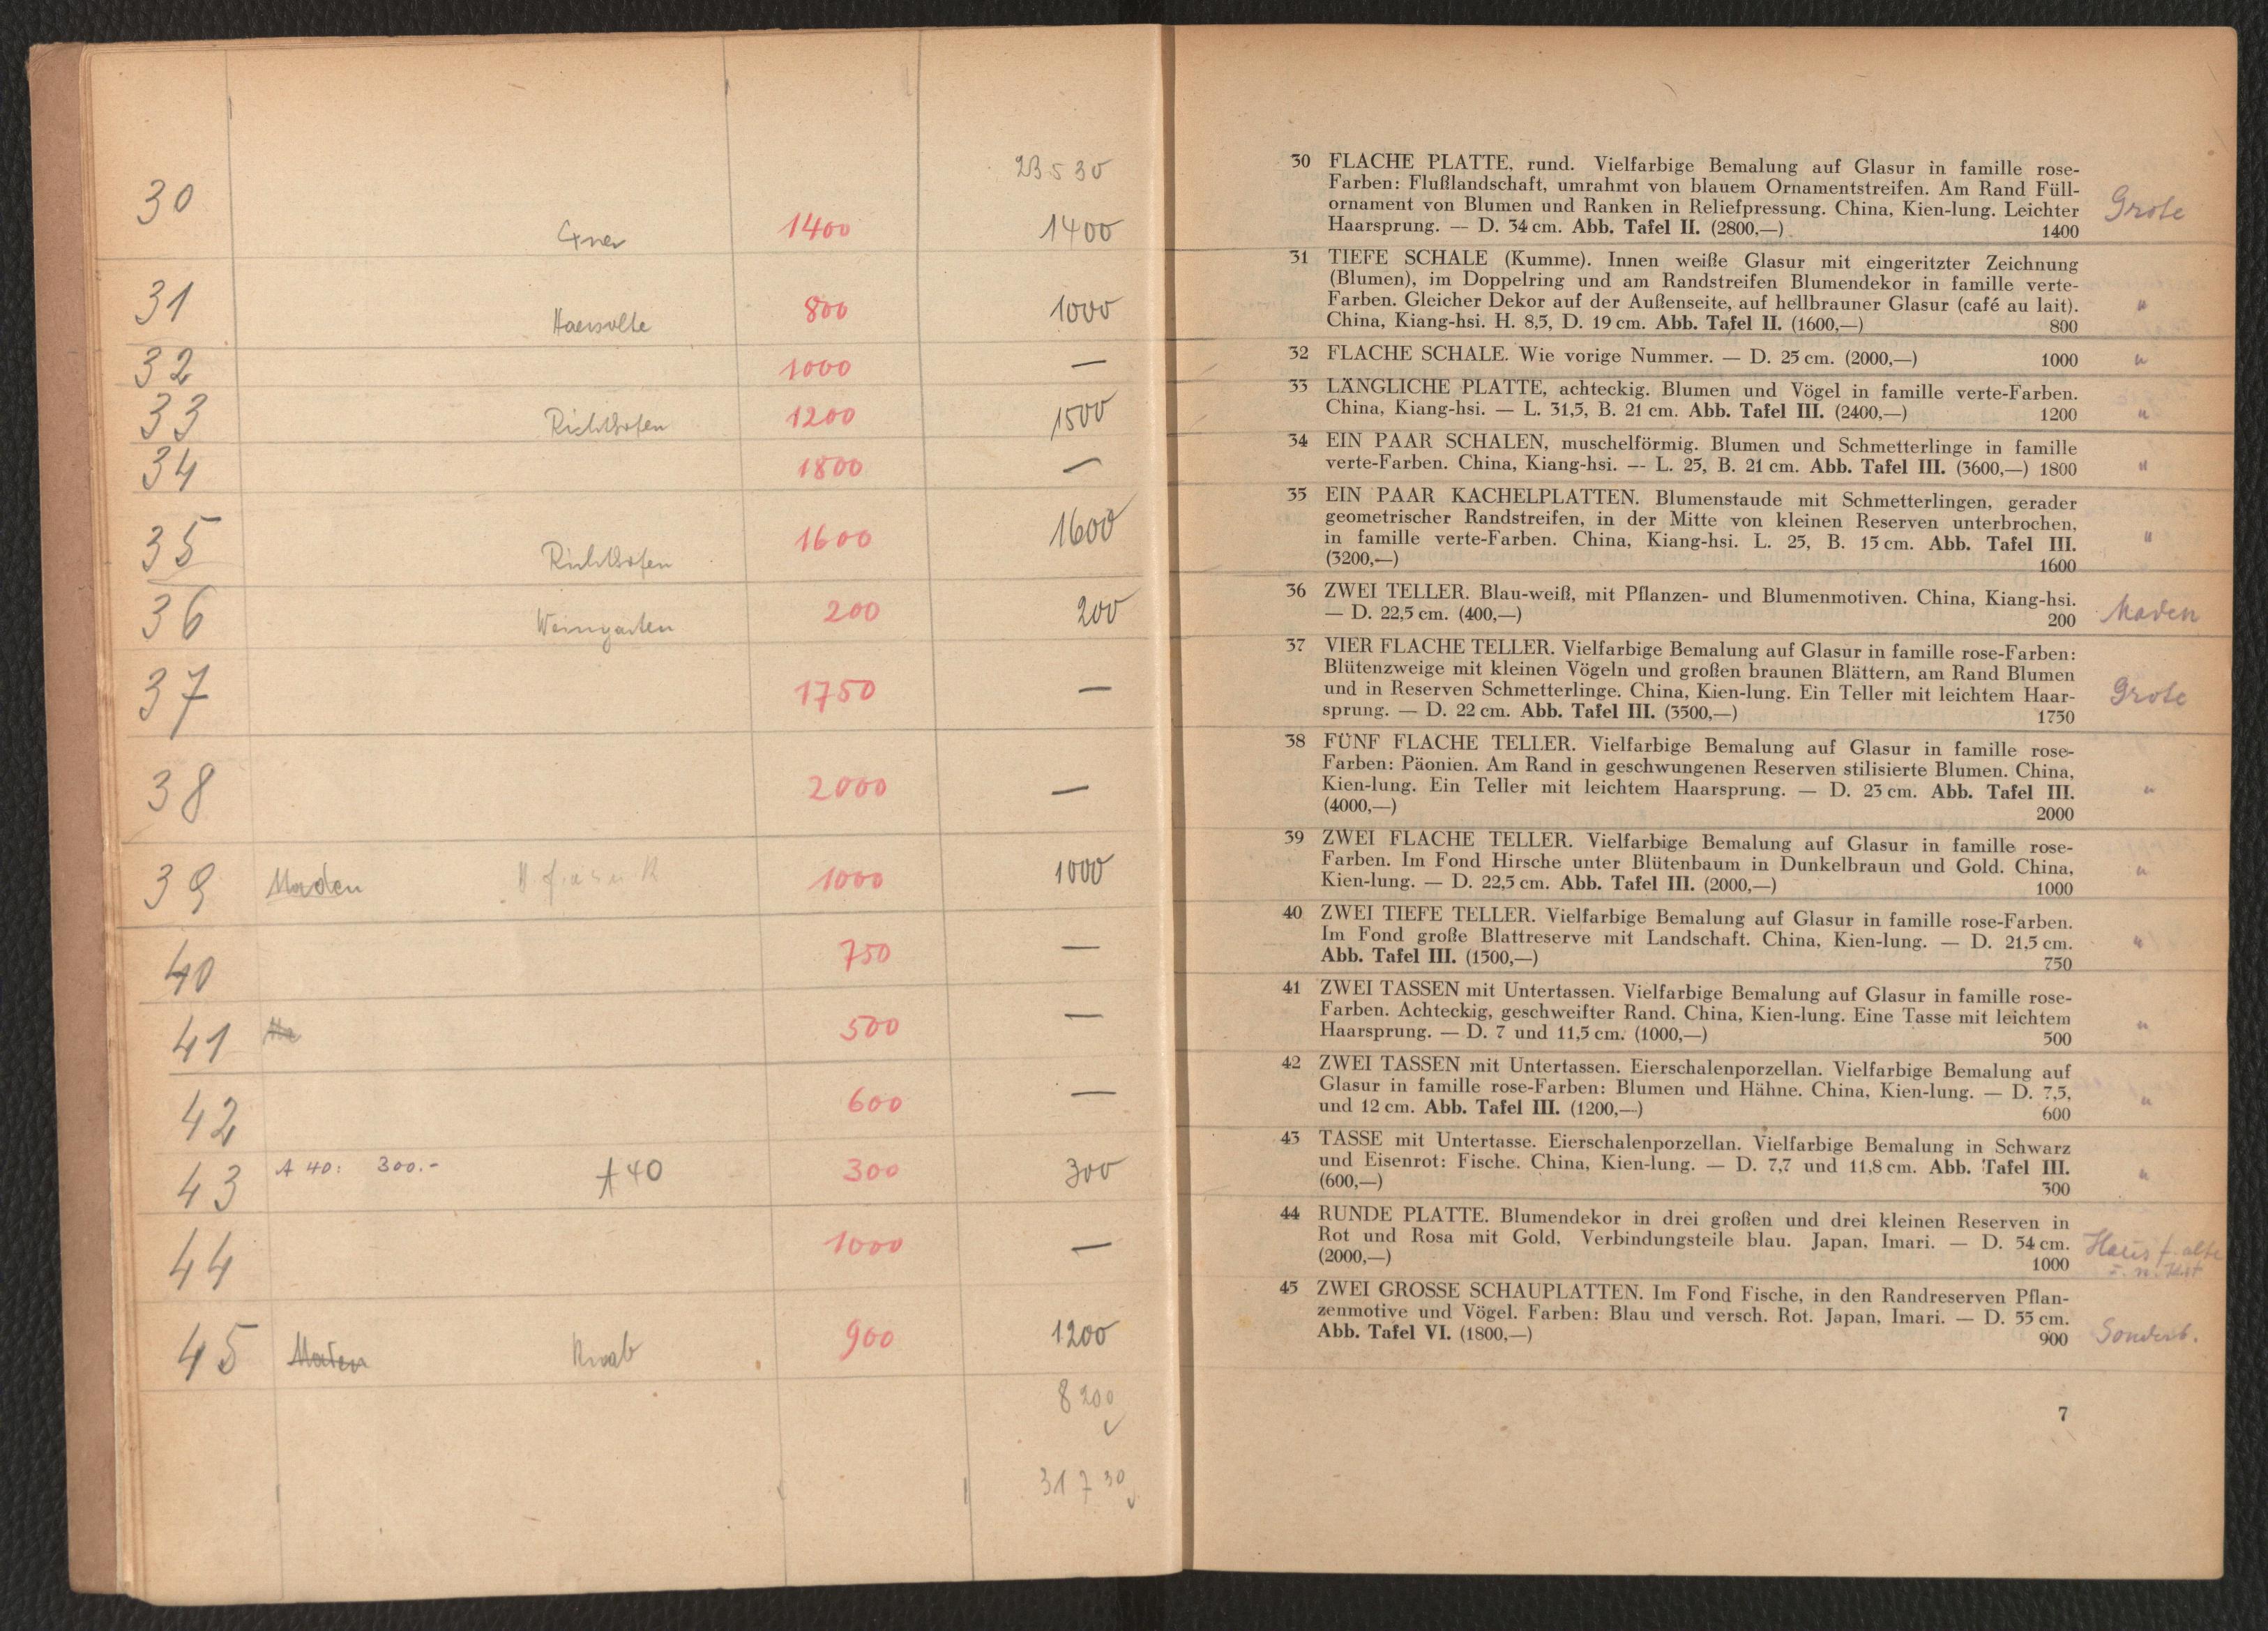 23530
30 Exner 1400 1400
31 Haersolte 800 1000
32 1000 —
33 Richthofen 1200 1500
34 1800 —
35 Richthofen 1600 1600
36 Weingarten 200 200
37 1750 —
38 2000 —
39 Maden 1000 1000
40 750 —
41 Ma 500 —
42 600 —
43 A 40: 300.- A 40 300 300
44 1000 —
45 Maden Knab 900 1200
8200
31730
30 FLACHE PLATTE, rund. Vielfarbige Bemalung auf Glasur in famille rose-
Farben: Flußlandschaft, umrahmt von blauem Ornamentstreifen. Am Rand Füll-
ornament von Blumen und Ranken in Reliefpressung. China, Kien-lung. Leichter Grote
Haarsprung. — D. 34 cm. Abb. Tafel II. (2800,—) 1400
31 TIEFE SCHALE (Kumme). Innen weiße Glasur mit eingeritzter Zeichnung
(Blumen), im Doppelring und am Randstreifen Blumendekor in famille verte-
Farben. Gleicher Dekor auf der Außenseite, auf hellbrauner Glasur (café au lait). "
China, Kiang-hsi. H. 8,5, D. 19 cm. Abb. Tafel II. (1600,—) 800
32 FLACHE SCHALE. Wie vorige Nummer. — D. 25 cm. (2000,—) 1000 "
33 LÄNGLICHE PLATTE, achteckig. Blumen und Vögel in famille verte-Farben.
China, Kiang-hsi. — L. 31,5, B. 21 cm. Abb. Tafel III. (2400,—) 1200 "
34 EIN PAAR SCHALEN, muschelförmig. Blumen und Schmetterlinge in famille
verte-Farben. China, Kiang-hsi. — L. 25, B. 21 cm. Abb. Tafel III. (3600,—) 1800 "
35 EIN PAAR KACHELPLATTEN. Blumenstaude mit Schmetterlingen, gerader
geometrischer Randstreifen, in der Mitte von kleinen Reserven unterbrochen,
in famille verte-Farben. China, Kiang-hsi. L. 25, B. 15 cm. Abb. Tafel III. "
(3200,—) 1600
36 ZWEI TELLER. Blau-weiß, mit Pflanzen- und Blumenmotiven. China, Kiang-hsi.
— D. 22,5 cm. (400,—) 200 Maden
37 VIER FLACHE TELLER. Vielfarbige Bemalung auf Glasur in famille rose-Farben:
Blütenzweige mit kleinen Vögeln und großen braunen Blättern, am Rand Blumen
und in Reserven Schmetterlinge. China, Kien-lung. Ein Teller mit leichtem Haar- Grote
sprung. — D. 22 cm. Abb. Tafel III. (3500,—) 1750
38 FÜNF FLACHE TELLER. Vielfarbige Bemalung auf Glasur in famille rose-
Farben: Päonien. Am Rand in geschwungenen Reserven stilisierte Blumen. China,
Kien-lung. Ein Teller mit leichtem Haarsprung. — D. 23 cm. Abb. Tafel III. "
(4000,—) 2000
39 ZWEI FLACHE TELLER. Vielfarbige Bemalung auf Glasur in famille rose-
Farben. Im Fond Hirsche unter Blütenbaum in Dunkelbraun und Gold. China, "
Kien-lung. — D. 22,5 cm. Abb. Tafel III. (2000,—) 1000
40 ZWEI TIEFE TELLER. Vielfarbige Bemalung auf Glasur in famille rose-Farben.
Im Fond große Blattreserve mit Landschaft. China, Kien-lung. — D. 21,5 cm. "
Abb. Tafel III. (1500,—) 750
41 ZWEI TASSEN mit Untertassen. Vielfarbige Bemalung auf Glasur in famille rose-
Farben. Achteckig, geschweifter Rand. China, Kien-lung. Eine Tasse mit leichtem "
Haarsprung. — D. 7 und 11,5 cm. (1000,—) 500
42 ZWEI TASSEN mit Untertassen. Eierschalenporzellan. Vielfarbige Bemalung auf
Glasur in famille rose-Farben: Blumen und Hähne. China, Kien-lung. — D. 7,5, "
und 12 cm. Abb. Tafel III. (1200,—) 600
43 TASSE mit Untertasse. Eierschalenporzellan. Vielfarbige Bemalung in Schwarz
und Eisenrot: Fische. China, Kien-lung. — D. 7,7 und 11,8 cm. Abb. Tafel III. "
(600,—) 300
44 RUNDE PLATTE. Blumendekor in drei großen und drei kleinen Reserven in
Rot und Rosa mit Gold, Verbindungsteile blau. Japan, Imari. — D. 54 cm. Haus f. alte
(2000,—) 1000 u. n. Kst
45 ZWEI GROSSE SCHAUPLATTEN. Im Fond Fische, in den Randreserven Pflan-
zenmotive und Vögel. Farben: Blau und versch. Rot. Japan, Imari. — D. 55 cm.
Abb. Tafel VI. (1800,—) 900 Sonderb.
7